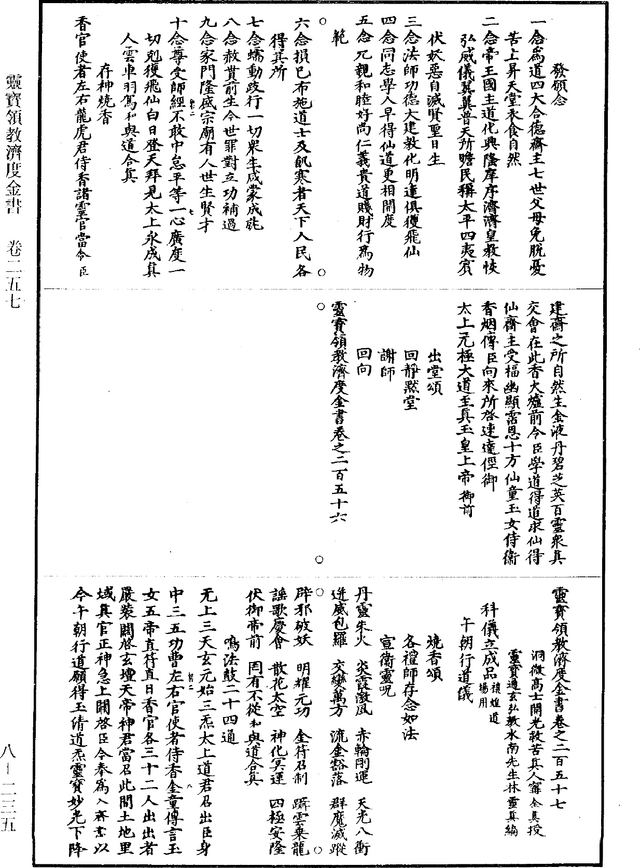 發願念
一念為道四大合德齋主七世父母免脫憂
苦上昇天堂衣食自然
二念帝王國主道化興隆庠序濟濟皇教恢
弘威儀翼翼普天所瞻民稱太平四夷賓
伏妖惡自滅賢聖日生
三念法師功德大建教化明達俱獲飛仙
四念同志學人早得仙道更相開度
五念九親和睦好尚仁義貴道賤財行為物
範
六念損己布施道士及飢寒者天下人民各
得其所
七念蠕動跂行一切眾生咸蒙成就
八念赦貰前生今世罪對立功補過
九念家門隆盛宗廟有人世生賢才
十念尊受師經不敢中怠平等一心廣度一
切剋獲飛仙白日登天拜見太上永成真
人雲車羽駕和與道合真
存神燒香
香官使者左右龍虎君侍香諸靈官當令臣
建齋之所自然生金液丹碧芝英百靈眾真
交會在此香火爐前今臣學道得道求仙得
仙齋主受福幽顯霑恩十方仙童玉女侍衛
香烟傳臣向來所啓速達徑御
太上元極大道至真玉皇上帝御前
出堂頌
回靜默堂
謝師
回向
靈寶領教濟度金書卷之二百五十六
靈寶領教濟度金書卷之二百五十七
洞微高士開光救苦真人甯全真授
靈寶通玄弘教水南先生林靈真編
科儀立成品 禳蝗道場用
午朝行道儀
燒香頌
各禮師存念如法
宣衛靈呪
丹靈朱火 炎霞激風 赤輪剛運 天光八衝
逆威包羅 交變萬方 流金豁落 群魔滅蹤
辟邪破妖 明耀元功 金符召制 躋雲乘龍
謠歌慶會 散花太空 神化冥運 四極安隆
伏御帝前 罔有不從和與道合真
鳴法鼓二十四通
无上三天玄元始三炁太上道君召出臣身
中三五功曹左右官使者侍香金童傳言玉
女五帝直符直日香官各三十二人出出者
嚴裝關啓玄壇天帝神君當召此間土地里
域真官正神急上關啓臣今奉為入齋意以
今午朝行道願得玉倩道炁靈寶妙光下降
靈寶領教濟度金書 卷二五七
八—二三五